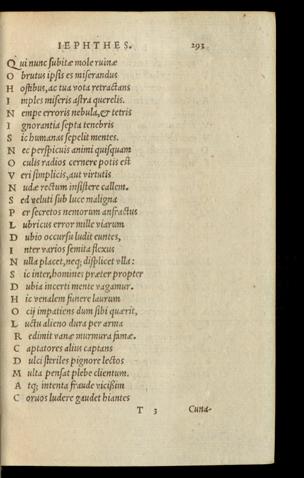 IEPHTHES. 293
Qui nunc subitæ mole ruinæ
Obrutus ipsis es miserandus
Hostibus, ac tua vota retractans
Imples miseris astra querelis.
Nempe erroris nebula, & tetris
Ignorantia septa tenebris
Sic humanas sepelit mentes.
Nec perspicuis animi quisquam
Oculis radios cernere potis est
Veri simplicis, aut virtutis
Nudæ rectum insistere callem.
Sed veluti sub luce maligna
Per secretos nemorum anfractus
Lubricus error mille viarum
Dubio occursu ludit euntes,
Inter varios semita flexus
Nulla placet, neq; displicet vlla:
Sic inter, homines præter propter
Dubia incerti mente vagamur.
Hic venalem funere laurum
Ocij impatiens dum sibi quærit,
Luctu alieno dura per arma
Redimit vanæ murmura famæ.
Captatores alius captans
Dulci steriles pignore lectos
Multa pensat plebe clientum.
Atq; intenta fraude vicissim
Coruos ludere gaudet hiantes
T 3 Cuna-